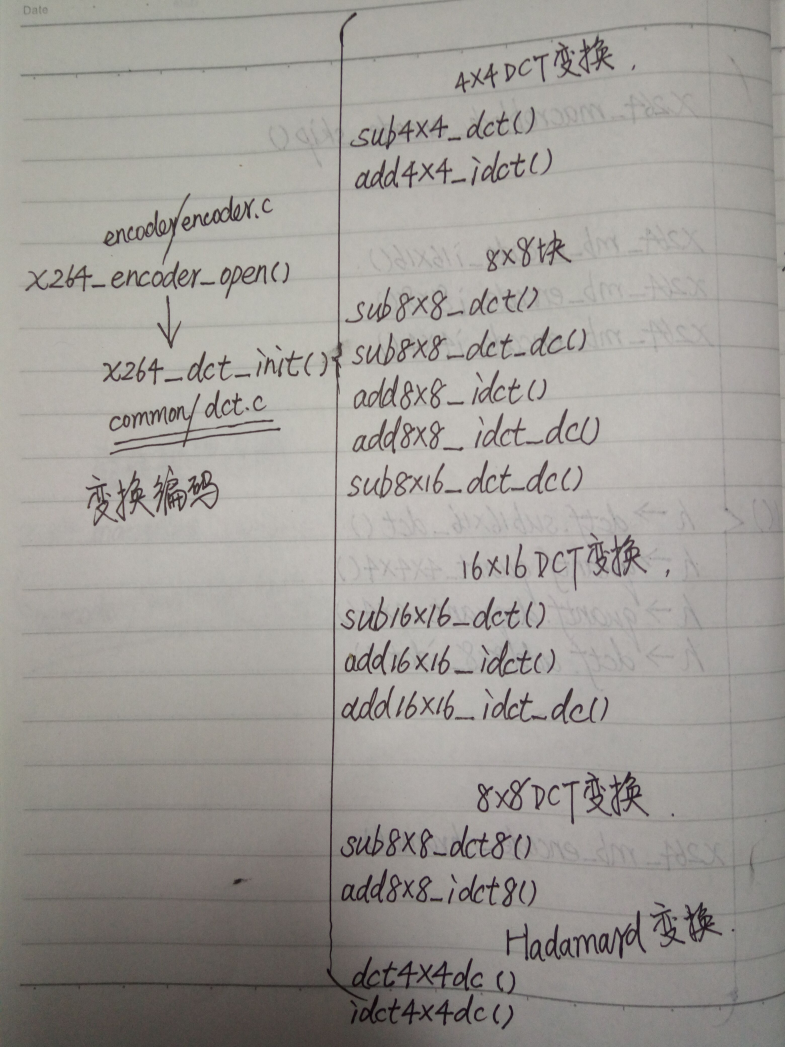 Date
encoder/encoder.c
x264_encoder_open()
x264_dct_init()
common/dct.c
变换编码
4×4DCT变换.
sub4×4_dct()
add4×4_idct()
8×8块
sub8×8_dct()
sub8×8_dct_dc()
add8×8_idct()
add8×8_idct_dc()
sub8×16_dct_dc()
16×16DCT变换,
sub16×16_dct()
add16×16_idct()
add16×16_idct_dc()
8×8DCT变换.
sub8×8_dct8()
add8×8_idct8()
Hadamard变换.
dct4×4dc()
idct4×4dc()